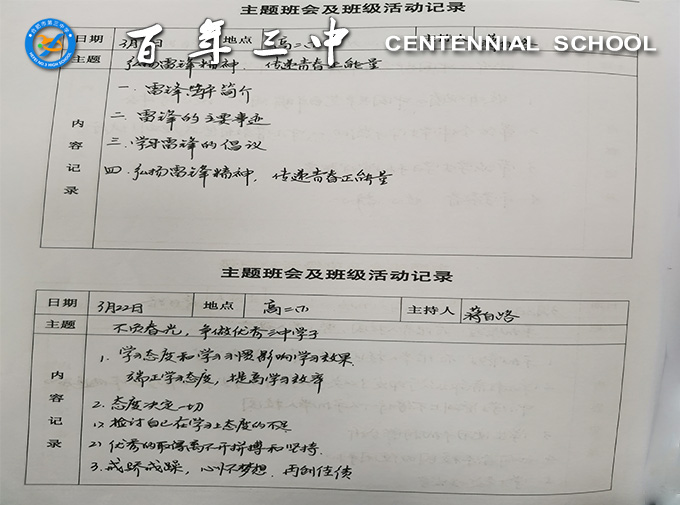 主题班会及班级活动记录
百年三中 CENTENNIAL SCHOOL
日期 3月 日 地点 高二 主持人
主题 弘扬雷锋精神，传递青春正能量
内容记录
一、雷锋生平简介
二、雷锋的主要事迹
三、学习雷锋的倡议
四、弘扬雷锋精神，传递青春正能量
主题班会及班级活动记录
日期 3月22日 地点 高二 主持人 蒋白
主题 不负春光，争做优秀三中学子
内容记录
1. 学习态度和学习习惯影响学习效果.
端正学习态度，提高学习效率
2. 态度决定一切
1) 检讨自己在学习上态度的不足
2) 优秀的取得离不开拼搏和坚持.
3. 戒骄戒躁，心怀梦想，再创佳绩